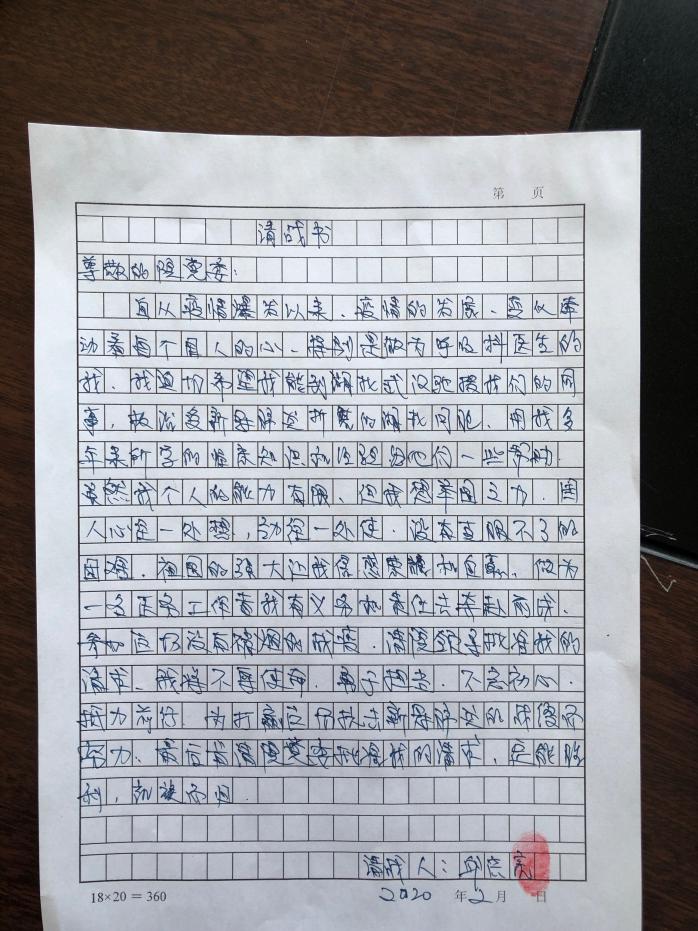 第 页
请战书
尊敬的院党委：
自从疫情爆发以来、疫情的发展、变化牵
动着每个国人的心、特别是做为呼吸科医生的
我、我迫切希望我能到湖北武汉驰援我们的同
事，救治受新冠肺炎折磨的湖北同胞、用我多
年来所学的临床知识和经验给他们一些帮助.
虽然我个人的能力有限、但我想举国之力.国
人心往一处想，劲往一处使.没有克服不了的
困难.祖国的强大让我倍感荣耀和自豪、做为
一名医务工作者我有义务和责任去奔赴前线、
参加这场没有硝烟的战疫.请院领导批准我的
请求、我将不辱使命.勇于担当.不忘初心.
砥力前行.为打赢这场抗击新冠肺炎的战役而
努力.最后请党委批准我的请求、定能胜
利，凯旋而归.
请战人：
18×20＝360
2020 年 2 月 日